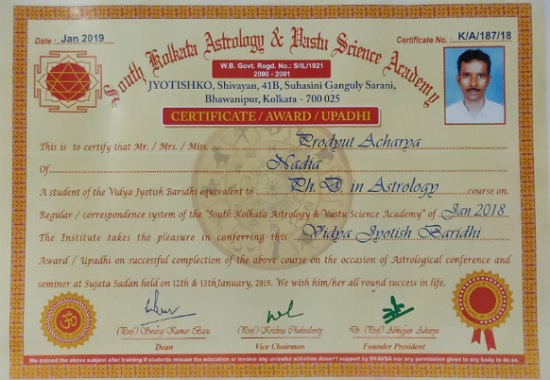 Date : Jan 2019
Certificate No. : K/A/187/18
South Kolkata Astrology & Vastu Science Academy
W.B. Govt. Regd. No.: S/IL/1921
2000 - 2001
JYOTISHKO, Shivayan, 41B, Suhasini Ganguly Sarani,
Bhawanipur, Kolkata - 700 025
CERTIFICATE / AWARD / UPADHI
This is to certify that Mr. / Mrs. / Miss. Prodyut Acharya
Of Nadia
A student of the Vidya Jyotish Baridhi equivalent to Ph.D in Astrology course on,
Regular / correspondence system of the "South Kolkata Astrology & Vastu Science Academy" of Jan 2018
The Institute takes the pleasure in conferring this Vidya Jyotish Baridhi
Award / Upadhi on successful complection of the above course on the occasion of Astrological conference and
seminar at Sujata Sadan held on 12th & 13th January, 2019. We wish him/her all round success in life.
(Prof) Swaraj Kumar Basu
Dean
(Prof) Krishna Chakraborty
Vice Chairman
Dr. (Prof) Abhagan Acharya
Founder President
We trained the above subject after training if students misuse the education or involve any unlawful activities doesn't support by SKAVSA nor any permission given to any body to do so.